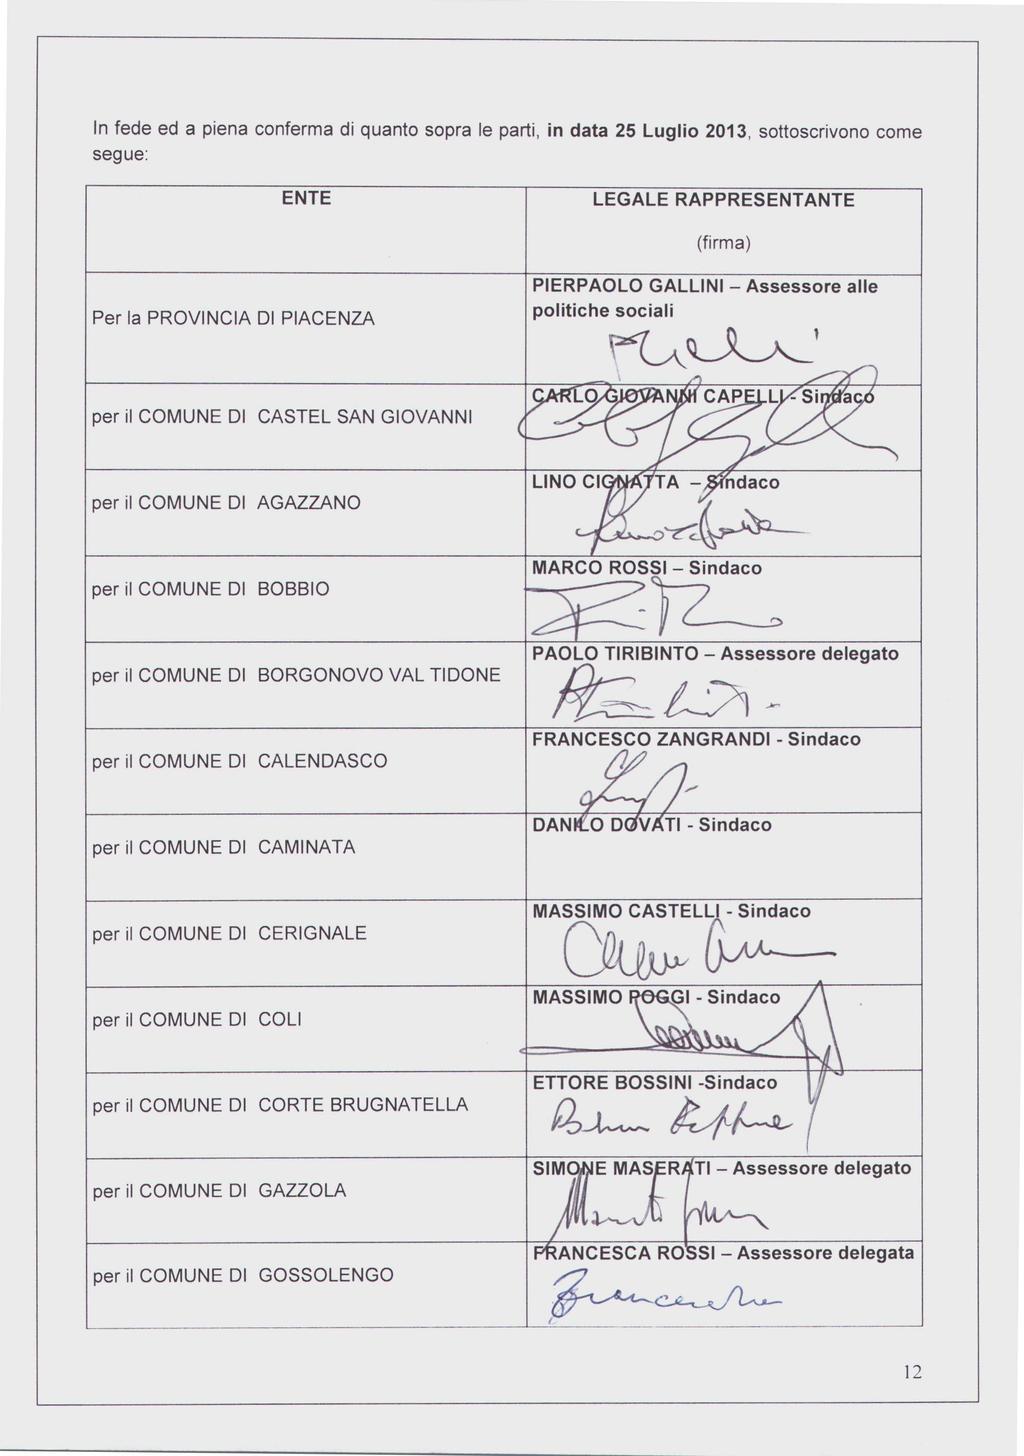 In fede ed a piena conferma di quanto sopra le parti, in data 25 Luglio 2013, sottoscrivono come
segue:
ENTE
LEGALE RAPPRESENTANTE
(firma)
Per la PROVINCIA DI PIACENZA
PIERPAOLO GALLINI – Assessore alle
politiche sociali
per il COMUNE DI CASTEL SAN GIOVANNI
CARLO GIOVANNI CAPELLI - Sindaco
per il COMUNE DI AGAZZANO
LINO CIGNATTA – Sindaco
per il COMUNE DI BOBBIO
MARCO ROSSI – Sindaco
per il COMUNE DI BORGONOVO VAL TIDONE
PAOLO TIRIBINTO – Assessore delegato
per il COMUNE DI CALENDASCO
FRANCESCO ZANGRANDI - Sindaco
per il COMUNE DI CAMINATA
DANILO DOVATI - Sindaco
per il COMUNE DI CERIGNALE
MASSIMO CASTELLI - Sindaco
per il COMUNE DI COLI
MASSIMO POGGI - Sindaco
per il COMUNE DI CORTE BRUGNATELLA
ETTORE BOSSINI -Sindaco
per il COMUNE DI GAZZOLA
SIMONE MASERATI – Assessore delegato
per il COMUNE DI GOSSOLENGO
FRANCESCA ROSSI – Assessore delegata
12